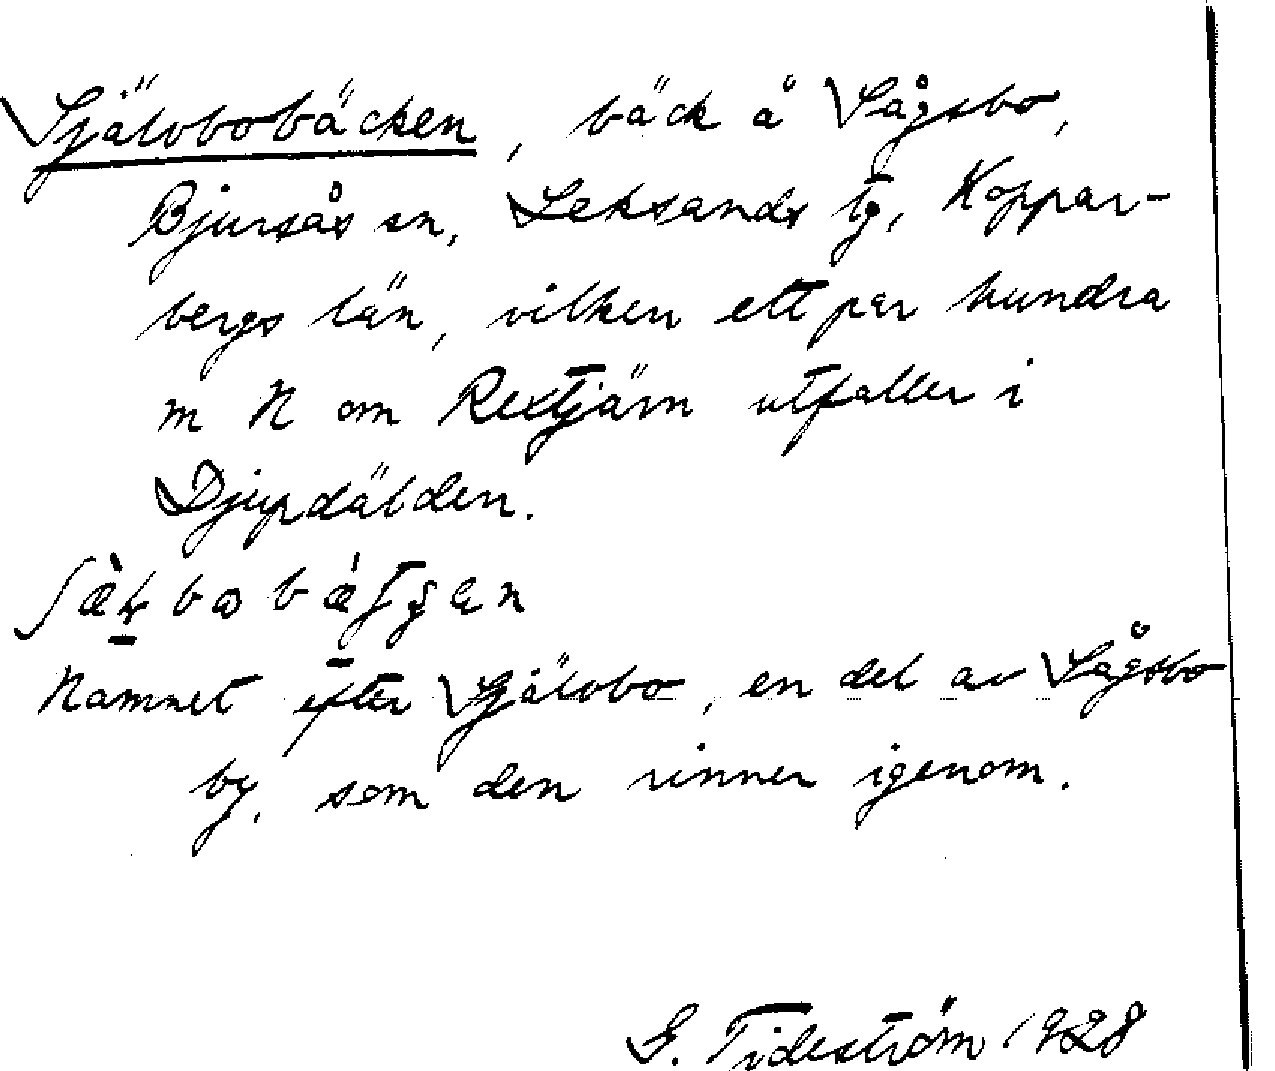 Självbobäcken, bäck å Sågsbo,
Bjursås sn, Leksands tg, Koppar-
bergs län, vilken ett par hundra
m N om Rextjärn utfaller i
Djupdälden.
Namnet efter Självbo, en del av Sågsbo
by, som den rinner igenom.
G. Tideström 1928